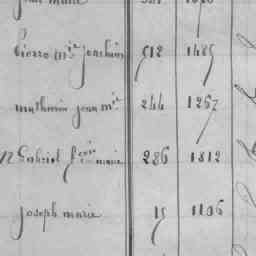 Pierre M.ie Joachim 512 1485
Mathurin Jean M.ie 244 1267
Gabriel F.çois Marie 286 1812
Joseph Marie 15 1106